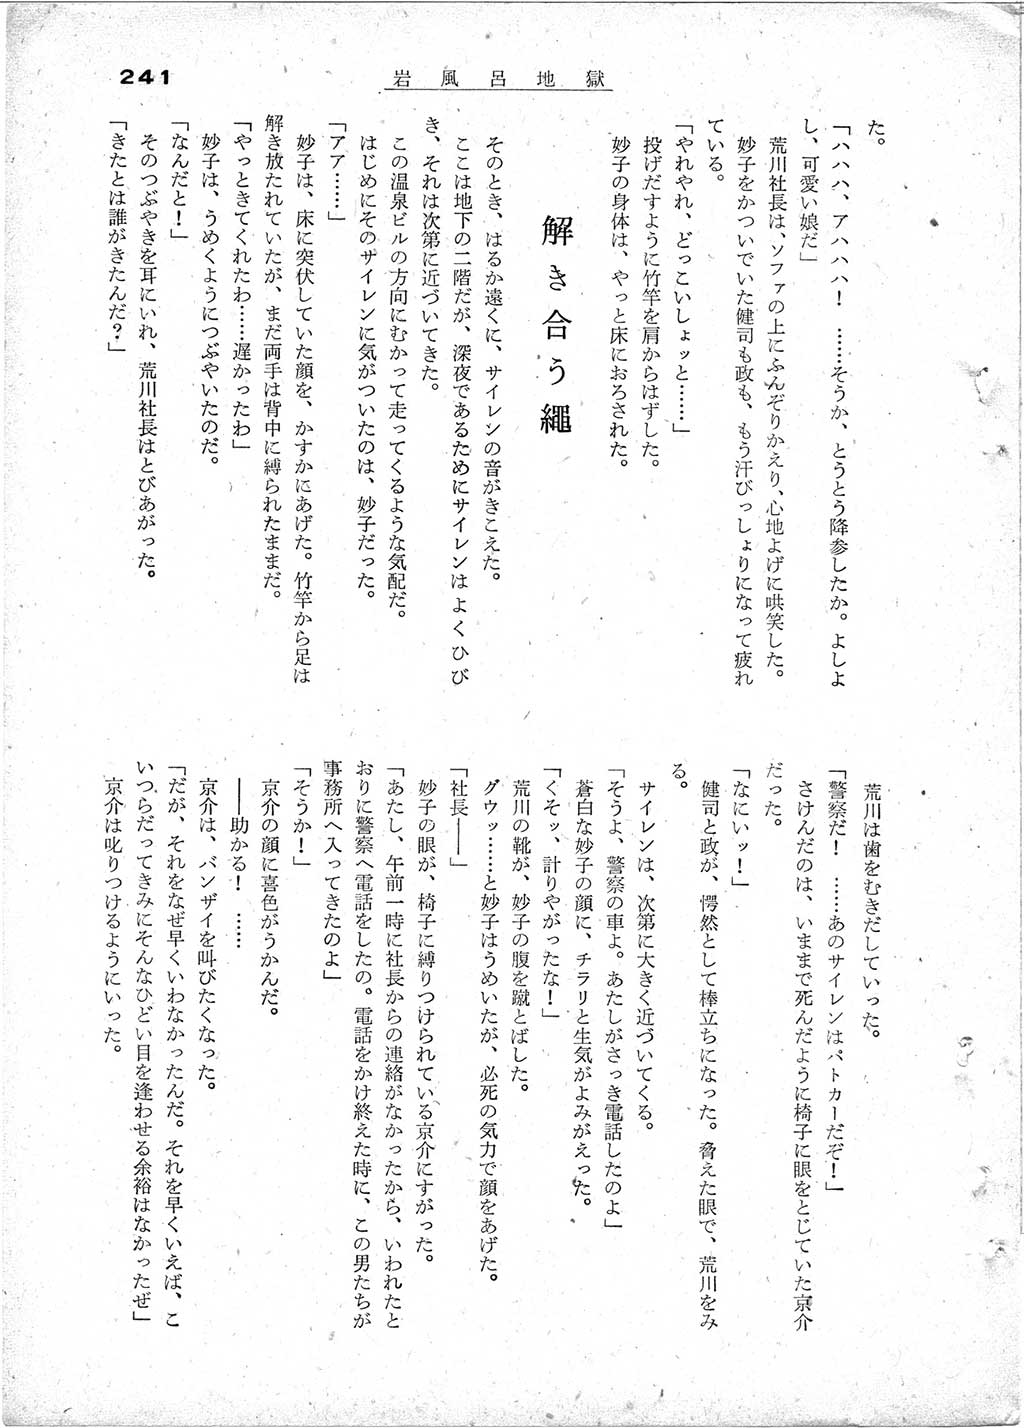 241
岩風呂地獄
た。
「ハハハ、アハハハ！　……そうか、とうとう降参したか。よしよ
し、可愛い娘だ」
荒川社長は、ソファの上にふんぞりかえり、心地よげに哄笑した。
妙子をかついでいた健司も政も、もう汗びっしょりになって疲れ
ている。
「やれやれ、どっこいしょッと……」
投げだすように竹竿を肩からはずした。
妙子の身体は、やっと床におろされた。
解き合う繩
そのとき、はるか遠くに、サイレンの音がきこえた。
ここは地下の二階だが、深夜であるためにサイレンはよくひび
き、それは次第に近づいてきた。
この温泉ビルの方向にむかって走ってくるような気配だ。
はじめにそのサイレンに気がついたのは、妙子だった。
「アア……」
妙子は、床に突伏していた顔を、かすかにあげた。竹竿から足は
解き放たれていたが、まだ両手は背中に縛られたままだ。
「やっときてくれたわ……遅かったわ」
妙子は、うめくようにつぶやいたのだ。
「なんだと！」
そのつぶやきを耳にいれ、荒川社長はとびあがった。
「きたとは誰がきたんだ？」
荒川は歯をむきだしていった。
「警察だ！　……あのサイレンはパトカーだぞ！」
さけんだのは、いままで死んだように椅子に眼をとじていた京介
だった。
「なにいッ！」
健司と政が、愕然として棒立ちになった。脅えた眼で、荒川をみ
る。
サイレンは、次第に大きく近づいてくる。
「そうよ、警察の車よ。あたしがさっき電話したのよ」
蒼白な妙子の顔に、チラリと生気がよみがえった。
「くそッ、計りやがったな！」
荒川の靴が、妙子の腹を蹴とばした。
グウッ……と妙子はうめいたが、必死の気力で顔をあげた。
「社長――」
妙子の眼が、椅子に縛りつけられている京介にすがった。
「あたし、午前一時に社長からの連絡がなかったから、いわれたと
おりに警察へ電話をしたの。電話をかけ終えた時に、この男たちが
事務所へ入ってきたのよ」
「そうか！」
京介の顔に喜色がうかんだ。
――助かる！　……
京介は、バンザイを叫びたくなった。
「だが、それをなぜ早くいわなかったんだ。それを早くいえば、こ
いつらだってきみにそんなひどい目を逢わせる余裕はなかったぜ」
京介は叱りつけるようにいった。